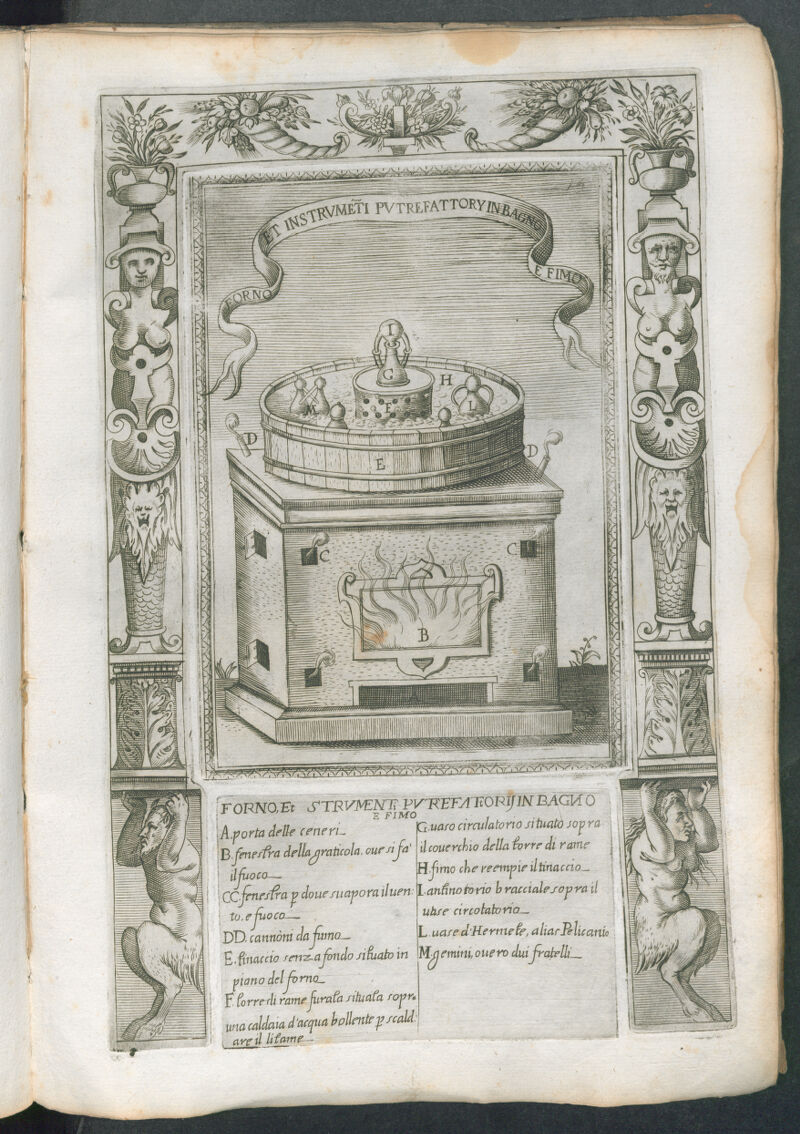 FORNO ET INSTRVMEÑTI PVTREFATTORY IN BAGNO E FIMO
I
G
H
F
M
L
D
D
E
C
C
B
FORNO, Et STRVMENTi PVTREFATTORIJ IN BAGNO
E FIMO
A. porta delle ceneri
B. fenestra della graticola. oue si fa'
il fuoco
CC fenestra p doue suapora il uen:
to. e fuoco
DD. cannoni da fumo
E. tinaccio senza fondo situato in
piano del forno
F. torre di rame furata situata sopr.
una caldaia d'acqua bollente p scald
are il litame
G. uaso circulatorio situato sopra
il couerchio della torre di rame
H. fimo che reempie il tinaccio
I. antinotorio bracciale sopra il
uase circolatorio
L. uase d'Hermete, alias Pelicanto
M. gemini, ouero dui fratelli